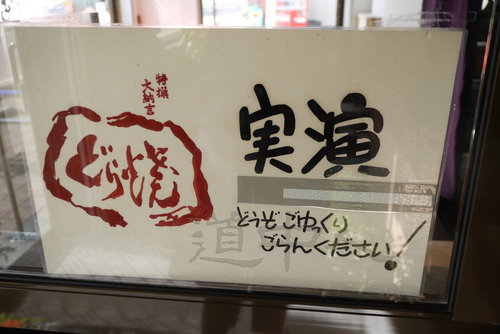 特撰
大納言
どら焼
実演
どうぞごゆっくり
ごらんください!
道